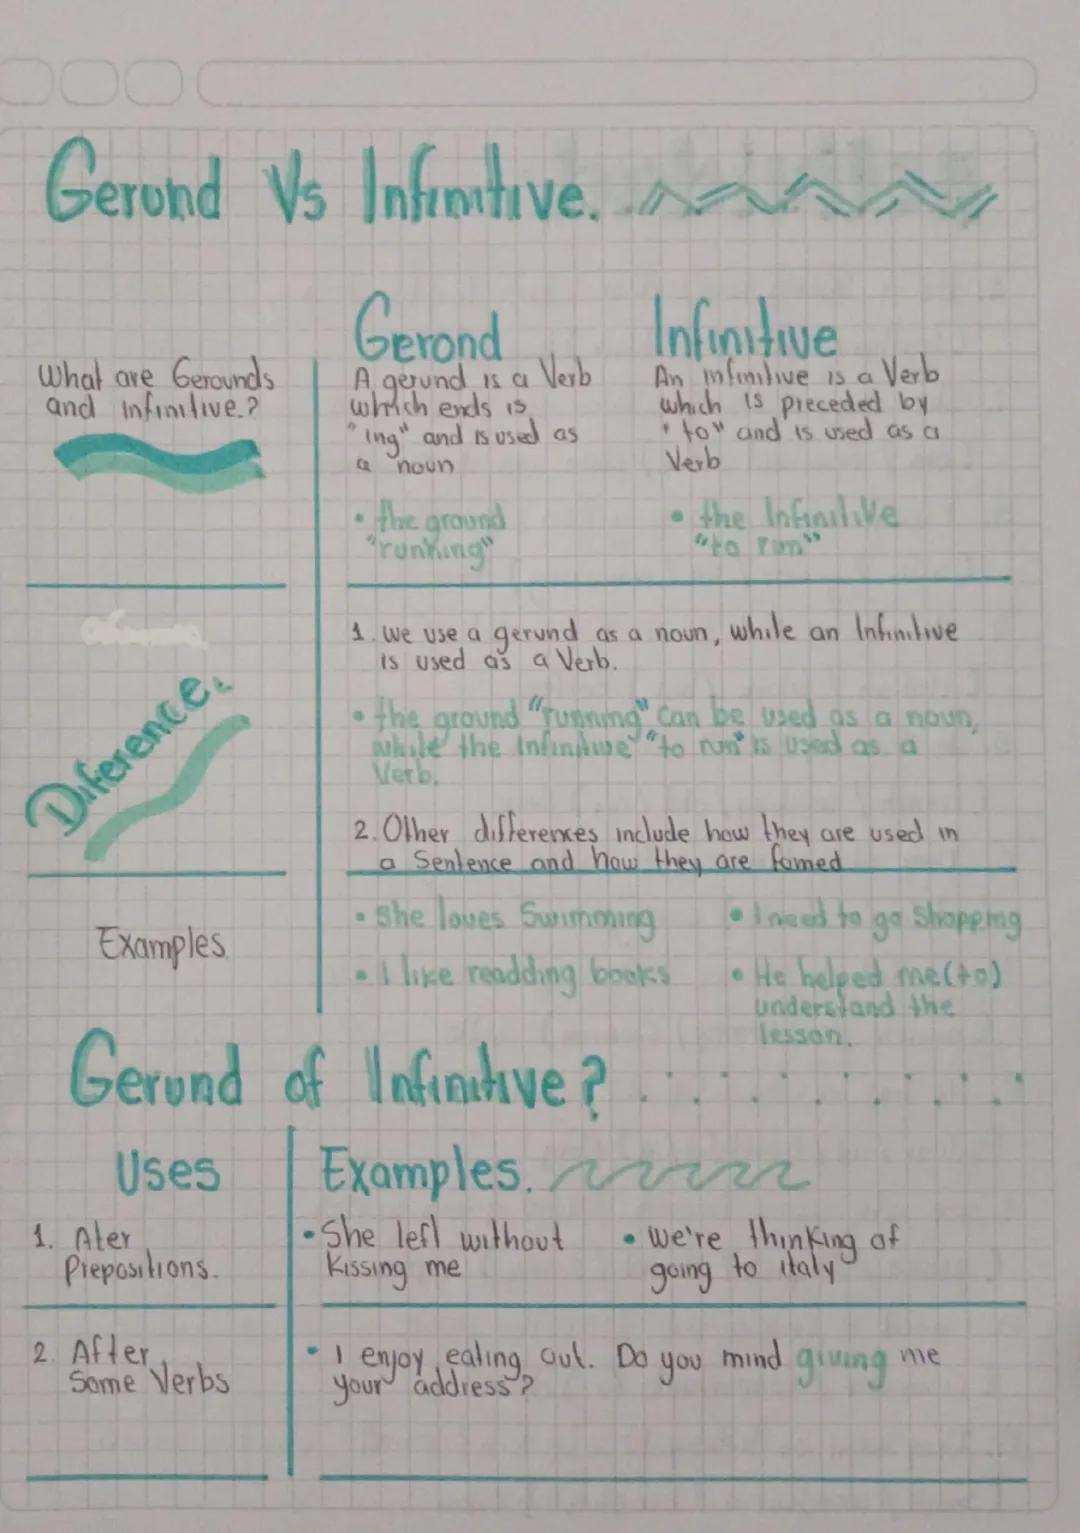 Gerund Vs Infinitive.
Gerond
Infinitive
What are Gerounds
and infinitive.?
A gerund is a Verb
which ends is
"ing" and is used as
a noun
An infinitive is a Verb
which is preceded by
"to" and is used as a
Verb
• the ground
"running"
• the Infinitive
"to run"
Diference.
1. we use a gerund as a noun, while an Infinitive
is used as a Verb.
• the ground "running" can be used as a noun,
while the Infinitive "to run" is used as a
Verb.
2. Other differences include how they are used in
a Sentence and how they are fomed
Examples
• She loves Swimming
• I like readding books
• I need to go Shopping
• He helped me (to)
understand the
lesson.
Gerund of Infinitive?
Uses
Examples.
1. Ater
Prepositions.
• She left without
Kissing me
• we're thinking of
going to italy
2. After
Some Verbs
• I enjoy eating out. Do you mind giving me
your address?